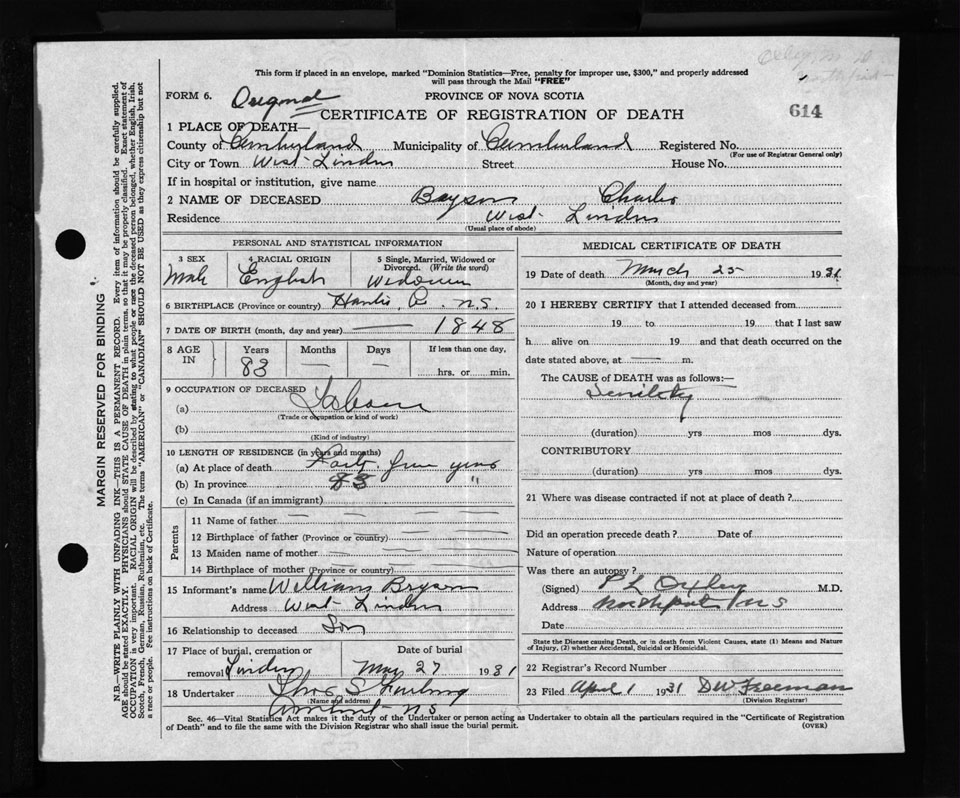 This form if placed in an envelope, marked "Dominion Statistics—Free, penalty for improper use, $300," and properly addressed
will pass through the Mail "FREE"
FORM 6. Original PROVINCE OF NOVA SCOTIA
CERTIFICATE OF REGISTRATION OF DEATH 614
1 PLACE OF DEATH—
County of Cumberland Municipality of Cumberland Registered No.
(For use of Registrar General only)
City or Town West Linden Street House No.
If in hospital or institution, give name
2 NAME OF DECEASED Bryson Charles
Residence West Linden
(Usual place of abode)
PERSONAL AND STATISTICAL INFORMATION
3 SEX 4 RACIAL ORIGIN 5 Single, Married, Widowed or Divorced. (Write the word)
Male English Widower
6 BIRTHPLACE (Province or country) Hants Co. N.S.
7 DATE OF BIRTH (month, day and year) — 1848
8 AGE IN Years Months Days If less than one day,
83 — — hrs. or min.
9 OCCUPATION OF DECEASED
(a) Laborer
(Trade or occupation or kind of work)
(b)
(Kind of industry)
10 LENGTH OF RESIDENCE (in years and months)
(a) At place of death Forty five years
(b) In province 83 "
(c) In Canada (if an immigrant)
Parents
11 Name of father — —
12 Birthplace of father (Province or country) — —
13 Maiden name of mother — —
14 Birthplace of mother (Province or country) — —
15 Informant's name William Bryson
Address West Linden
16 Relationship to deceased Son
17 Place of burial, cremation or removal Linden Date of burial Mar 27 1931
18 Undertaker Thos S Furlong
(Name and address)
Amherst N.S
MEDICAL CERTIFICATE OF DEATH
19 Date of death March 25 1931
(Month, day and year)
20 I HEREBY CERTIFY that I attended deceased from
19 to 19 that I last saw
h alive on 19 and that death occurred on the
date stated above, at — m.
The CAUSE of DEATH was as follows:—
Senility
(duration) yrs mos dys.
CONTRIBUTORY
(duration) yrs mos dys.
21 Where was disease contracted if not at place of death?
Did an operation precede death? Date of
Nature of operation
Was there an autopsy?
(Signed) P L Oxley M.D.
Address Northport N S
Date
State the Disease causing Death, or in death from Violent Causes, state (1) Means and Nature
of Injury, (2) whether Accidental, Suicidal or Homicidal.
22 Registrar's Record Number
23 Filed April 1 1931 D W Freeman
(Division Registrar)
Sec. 46—Vital Statistics Act makes it the duty of the Undertaker or person acting as Undertaker to obtain all the particulars required in the "Certificate of Registration
of Death" and to file the same with the Division Registrar who shall issue the burial permit. (OVER)
MARGIN RESERVED FOR BINDING
N.B.—WRITE PLAINLY WITH UNFADING INK—THIS IS A PERMANENT RECORD. Every item of information should be carefully supplied.
AGE should be stated EXACTLY. PHYSICIANS should STATE CAUSE OF DEATH in plain terms, so that it may be properly classified. Exact statement of
OCCUPATION is very important. RACIAL ORIGIN will be described by stating to what people or race the deceased person belonged, whether English, Irish,
Scotch, French, German, Russian, Ruthenian, etc. The terms "AMERICAN" or "CANADIAN" SHOULD NOT BE USED as they express citizenship but not
a race or people. See instructions on back of Certificate.